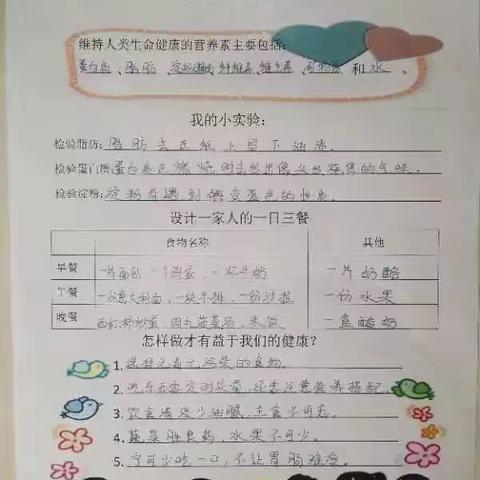 维持人类生命健康的营养素主要包括:
蛋白质、脂肪、淀粉(糖)、纤维素、维生素、矿物质 和 水 。
我的小实验:
检验脂肪: 脂肪会在纸上留下油渍。
检验蛋白质: 蛋白质在燃烧时会发出像头发烧焦的气味。
检验淀粉: 淀粉有遇到碘变蓝色的性质。
设计一家人的一日三餐
食物名称 其他
早餐 一片面包、一个煎蛋、一杯牛奶 一片奶酪
午餐 一份意大利面、一块牛排、一份沙拉 一份水果
晚餐 西红柿炒蛋、肉丸菠菜汤、米饭 一盒酸奶
怎样做才有益于我们的健康?
1. 选择无毒无污染的食物。
2. 吃东西要定时定量,还要注意营养搭配。
3. 饮食清淡少油腻,主食不可忘。
4. 蔬菜胜良药,水果不可少。
5. 宁可少吃一口,不让胃肠难受。